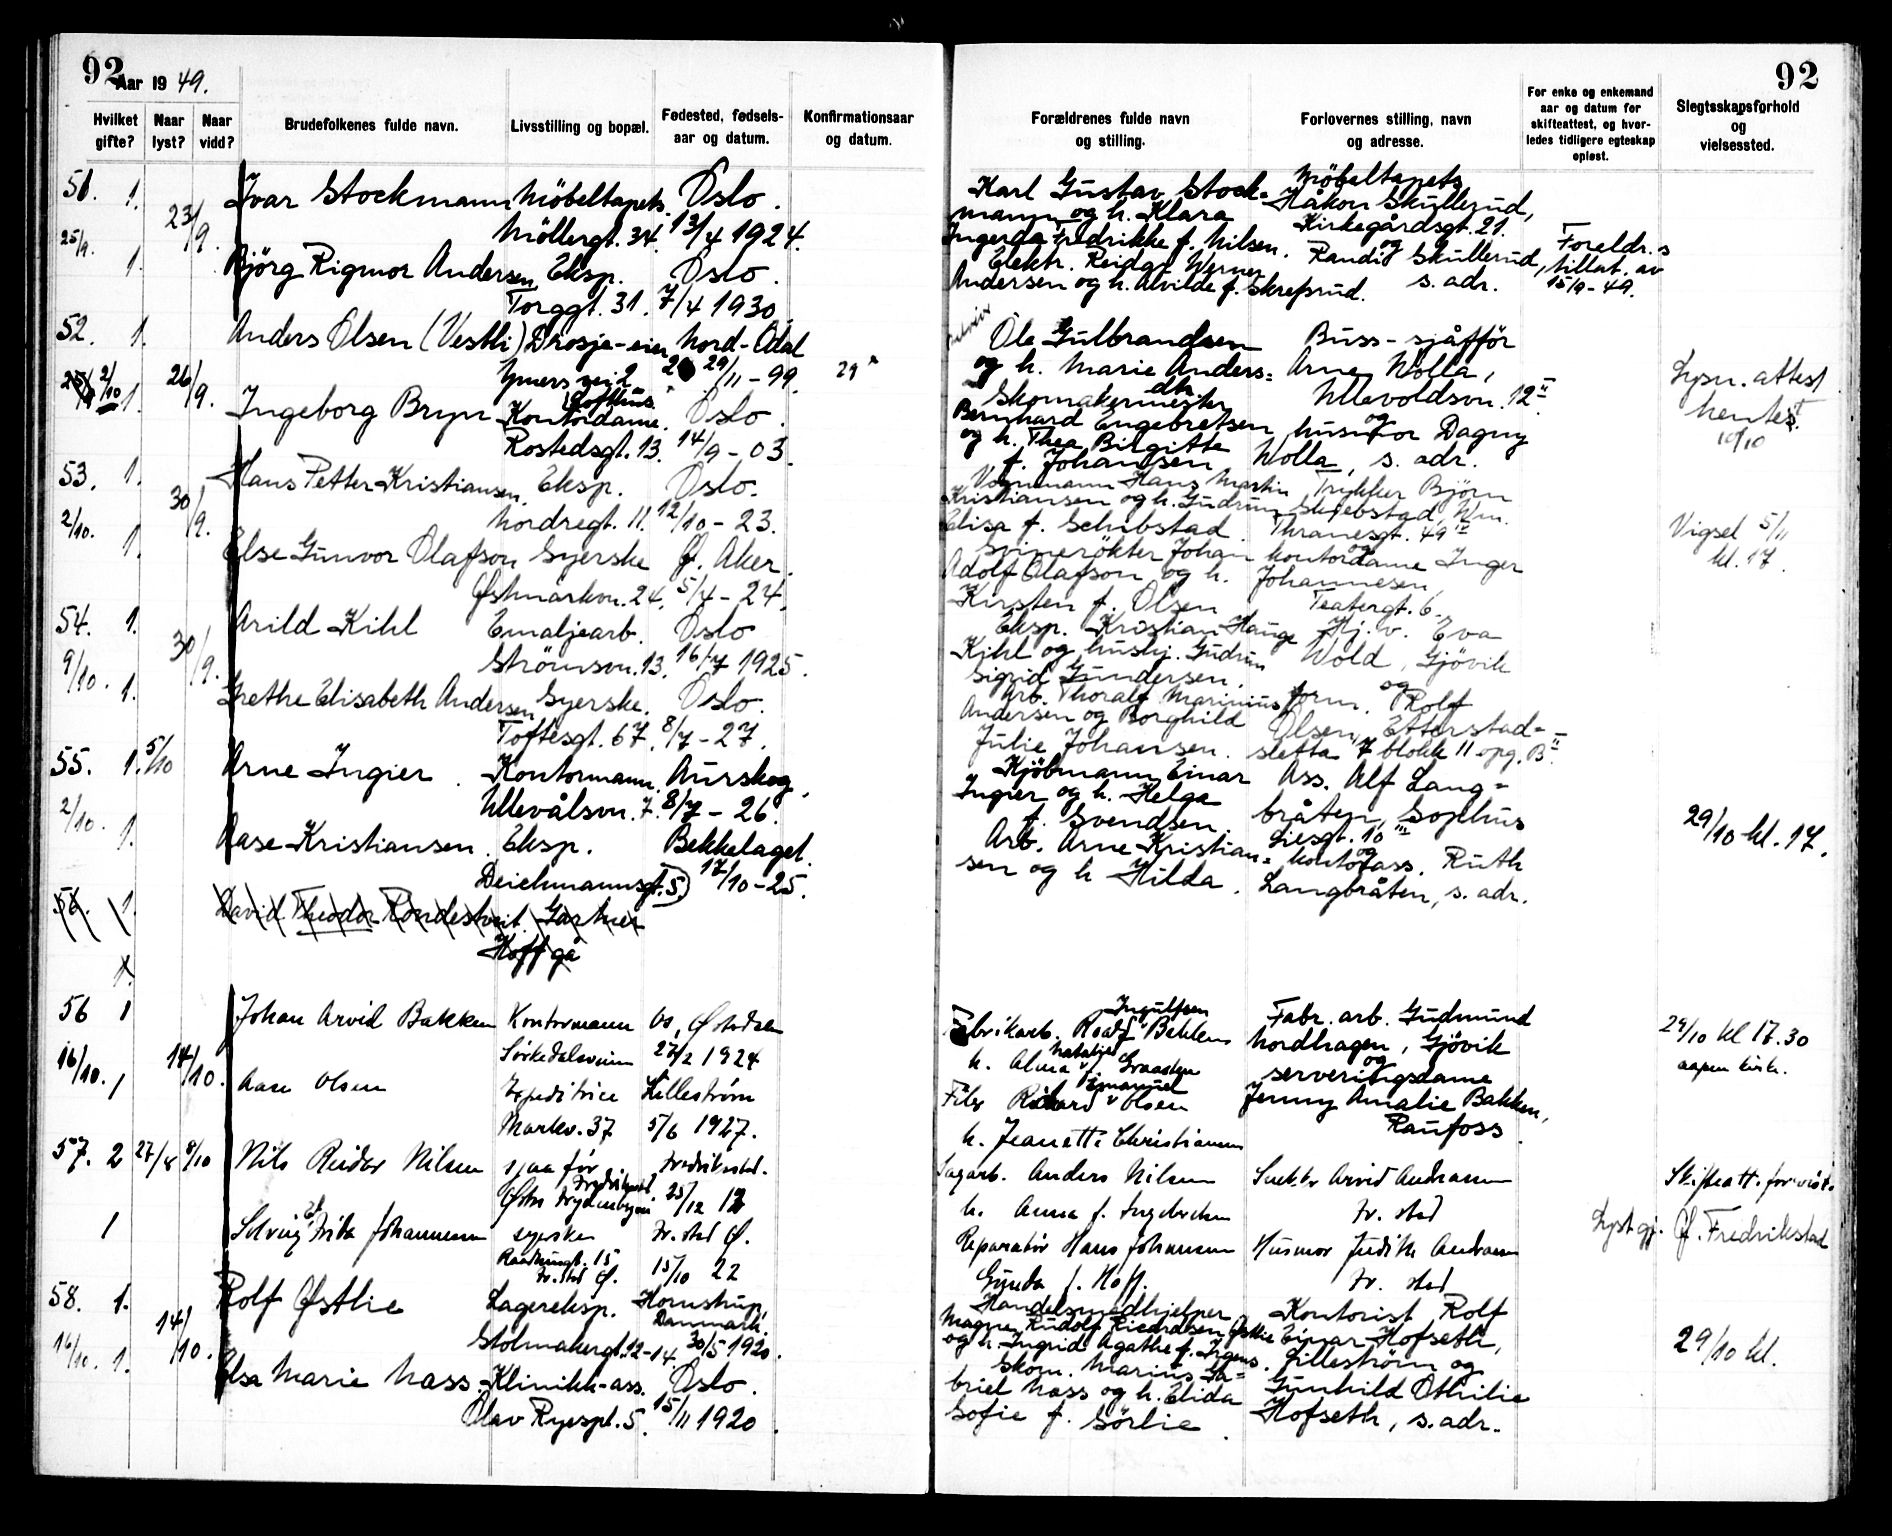 92
Aar 19 49.
Hvilket gifte?
Naar lyst?
Naar vidd?
Brudefolkenes fulde navn.
Livsstilling og bopæl.
Fødested, fødsels-
aar og datum.
Konfirmationsaar
og datum.
51. 1. 23/9. Ivar Stockmann Möbeltapets. Oslo.
Möllergt. 34. 13/4 1924.
25/9. 1. Björg Rigmor Andersen Eksp. Oslo.
Torggt. 31. 7/4 1930
52. 1. Anders Olsen (Vestli) Drosje-eier Nord-Odal
2/10 26/9. Ymers vei 2 29/11 - 99. 29
1. Ingeborg Bryn Kontordame. Oslo.
Rostedsgt. 13. 14/9 - 03.
53. 1. Hans Petter Kristiansen. Eksp. Oslo.
30/9. Nordregt. 11. 12/10 - 23.
2/10. 1. Else Gunvor Olafson Syerske Ø. Aker.
Østmarkvn. 24. 5/4 - 24.
54. 1. Arild Kihl Emaljearb. Oslo
30/9. Strömsvn. 13. 16/7 1925.
9/10. 1. Grethe Elisabeth Andersen Syerske. Oslo.
Toftesgt. 67. 8/7 - 27.
55. 1. 5/10 Arne Ingier. Kontormann. Aurskog.
Ullevålsvn. 7. 8/7 - 26.
2/10. 1. Aase Kristiansen. Eksp. Bekkelaget.
Deichmannsgt. 5. 17/10 - 25.
56. 1. David Theodor Rondestveit. Gartner
Hoff gå
1.
56 1 Johan Arvid Bakken Kontormann
Sørkedalsveien 27/2 1924
16/10. 14/10. 1 Aase Olsen Expeditrice Lillestrøm
Markv. 37 5/6 1927.
57. 2 27/8 8/10 Nils Reidar Nilsen sjaafør Fredrikstad.
25/12 12
1 Solveig Johannesen syerske Fr.stad Ø.
15
Fr.stad Ø. 15/10 22
58. 1. Rolf Østlie Lagereksp. Hornstrup,
Danmark.
14/10. Stolmakergt. 12-14. 30/5 1920.
16/10. 1. Elsa Marie Nass. Klinikk-ass. Oslo.
Olav Ryespl. 5. 15/11 1920.
92
Forældrenes fulde navn
og stilling.
Forlovernes stilling, navn
og adresse.
For enke og enkemand
aar og datum for
skifteattest, og hvor-
ledes tidligere egteskap
opløst.
Slegtsskapsforhold
og
vielsessted.
Karl Gustav Stock-
mann og h. Klara
Ingerda Fredrikke f. Nilsen.
Elektr. Reidar Werner
Andersen og h. Alvilde f. Skrefsrud.
Möbeltapets.
Håkon Skullerud,
Kirkegårdsgt. 21.
og
Randi Skullerud,
s. adr.
Foreldr.s
tillat. av
15/9 - 49.
Ole Gulbrandsen
og h. Marie Anders-
dtr.
Skomakermester
Bernhard Engebretsen
og h. Thea Birgitte
f. Johansen
Buss-sjåfför
Arne Wolla,
Ullevoldsvn. 12 II
og
husmor Dagny
Wolla, s. adr.
Lysn. attest
hentet.
10/10
Vognmann Hans Martin
Kristiansen og h. Gudrun
Elisa f. Schibstad.
Svinerökter Johan
Adolf Olafson og h.
Kirsten f. Olsen
Trykker Björn
Skiebstad, Wm.
Thranesgt. 49 IV
og
kontordame Inger
Johannesen,
Teatergt. 6.
Vigsel 5/11
kl. 17.
Eksp. Kristian Hauge
Kihl og hushj. Gudrun
Sigrid Gundersen.
Arb. Thoralf Marinius
Andersen og Borghild
Julie Johansen.
Hj.v. Eva
Wold, Gjövik
og
form. Rolf
Olsen, Etterstad-
sletta 7 blokk 11 opg. B II.
Kjöbmann Einar
Ingier og h. Helga
f. Svendsen.
Arb. Arne Kristian-
sen og h. Hilda.
Ass. Alf Lang-
bråten, Sophus
Liesgt. 10 III
og
kontorass. Ruth
Langbråten, s. adr.
29/10 kl. 17.
Ingulfsen
Fabrikarb. Bekken
Natalje
h. Alma f. Graasten
Emanuel
Filer Richard Olsen
h. Jeanette Christiansen
Fabr. arb. Gudmund
Nordhagen, Gjövik
og
serveringsdame
Jenny Amalie Bakken,
Raufoss.
29/10 kl 17.30
aapen kirke.
Sagarb. Anders Nilsen
h. Anna f. Ingebretsen
Reparatör Hans Johannesen
Gunda f. Hoff.
Snekker Arvid Andreassen
Fr. stad
Husmor Judith Andreassen
Fr. stad
Skifteatt. forevist.
Lyst gj. Ø. Fredrikstad
Handelsmedhjelper
Magne Rudolf Riedralsen Østlie
og h. Ingrid Agathe f. Irgens.
Skom. Marius Ga-
briel Nass og h. Elida
Sofie f. Sörlie.
Kontorist Rolf
Einar Hofseth,
Lilleström og
Gunhild Othilie
Hofseth, s. adr.
29/10 kl.